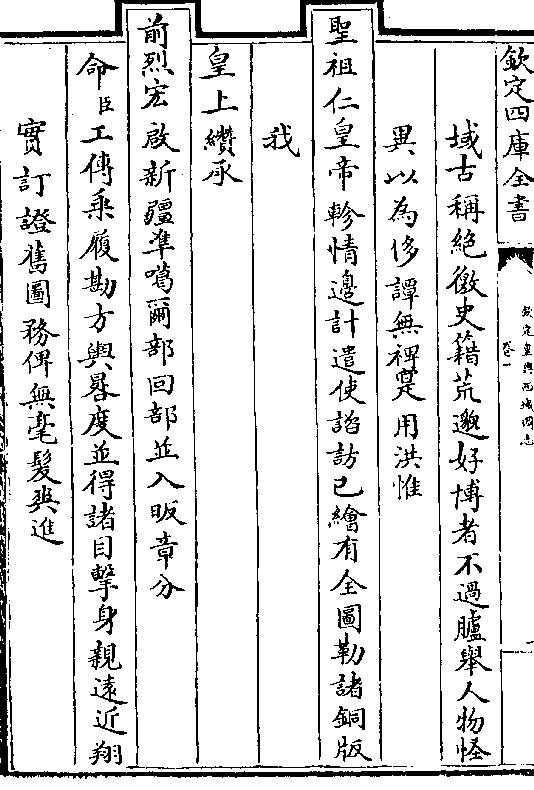 欽定四庫全書
欽定皇輿西域圖志
卷一
域古稱絶徼史籍荒邈好博者不過臚舉人物怪
異以為侈譚無裨寔用洪惟
聖祖仁皇帝軫情邊計遣使諮訪已繪有全圖勒諸銅版
我
皇上纘承
前烈宏啟新疆準噶爾部回部並入版章分
命臣工傳乗履勘方輿晷度並得諸目擊身親逺近翔
實訂證舊圖務俾無毫髮爽進